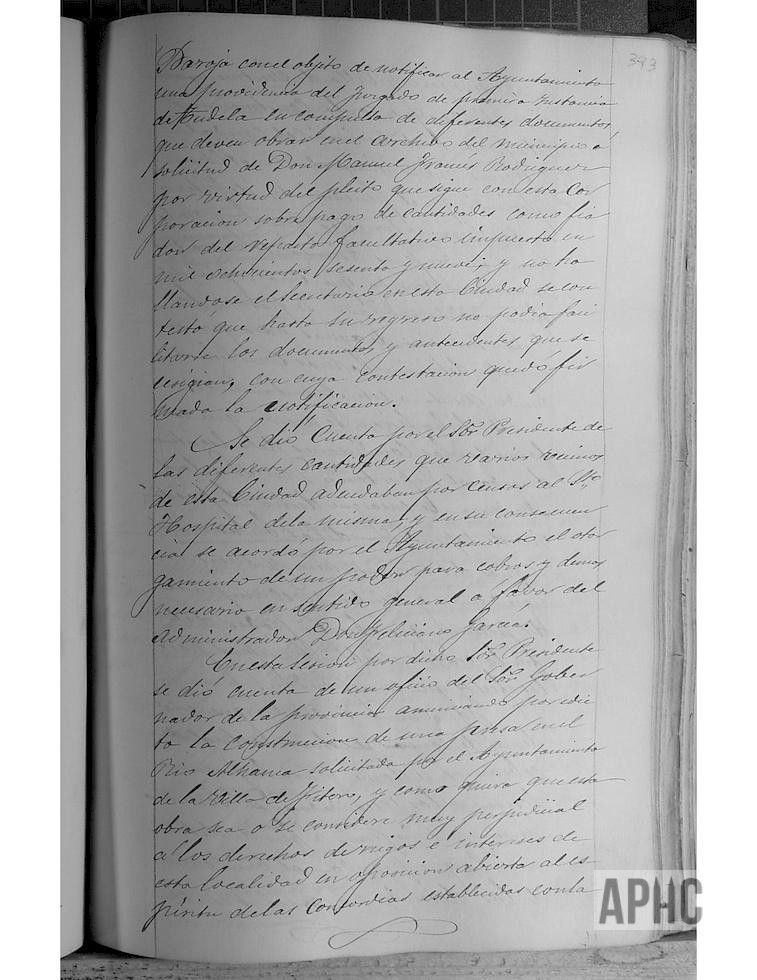 393
Baroja con el objeto de notificar al Ayuntamiento
una providencia del Juzgado de primera Instancia
de Tudela en compulsa de diferentes documentos
que deven obrar en el archivo del municipio a
solicitud de Don Manuel Francés Rodriguez
por virtud del pleito que sigue con esta Cor
poracion sobre pago de cantidades como fia
dor del reparto facultativo impuesto en
mil ochocientos sesenta y nueve; y no ha
llandose el Secretario en esta Ciudad se con
testó que hasta su regreso no podia faci
litarse los documentos y antecedentes que se
exigian, con cuya contestacion quedó fir
mada la notificacion.
Se dió Cuenta por el Sor. Presidente de
las diferentes cantidades que varios vecinos
de esta Ciudad adeudaban por censos al Sto.
Hospital de la misma, y en su consecuen
cia se acordó por el Ayuntamiento el otor
gamiento de un poder para cobros y demas
necesario en sentido general a favor del
Administrador Don Feliciano García.
En esta Sesion por dicho Sor. Presidente
se dió cuenta de un oficio del Sor. Gober
nador de la provincia anunciando por edic
to la construccion de una presa en el
Rio Alhama solicitada por el Ayuntamiento
de la Villa de Fitero, y como quiera que esta
obra sea o se considere muy perjudicial
á los derechos de riegos e intereses de
esta localidad en oposicion abierta al es
píritu de las Concordias establecidas con la
APHC